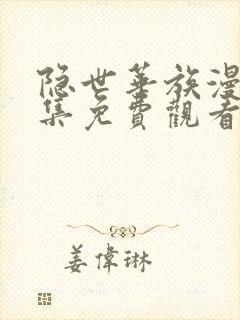 隐世華族漫
集免費觀看
姜偉琳